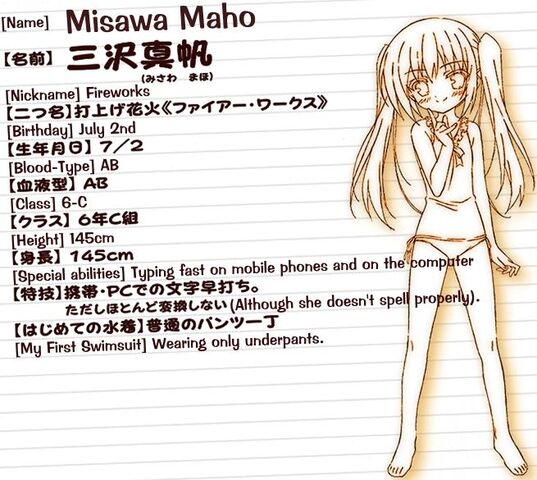 [Name] Misawa Maho
【名前】 三沢真帆
(みさわ まほ)
[Nickname] Fireworks
【二つ名】打上げ花火《ファイアー・ワークス》
[Birthday] July 2nd
【生年月日】 7/2
[Blood-Type] AB
【血液型】 AB
[Class] 6-C
【クラス】 6年C組
[Height] 145cm
【身長】 145cm
[Special abilities] Typing fast on mobile phones and on the computer
【特技】携帯・PCでの文字早打ち。
ただしほとんど変換しない (Although she doesn't spell properly).
【はじめての水着】普通のパンツ一丁
[My First Swimsuit] Wearing only underpants.